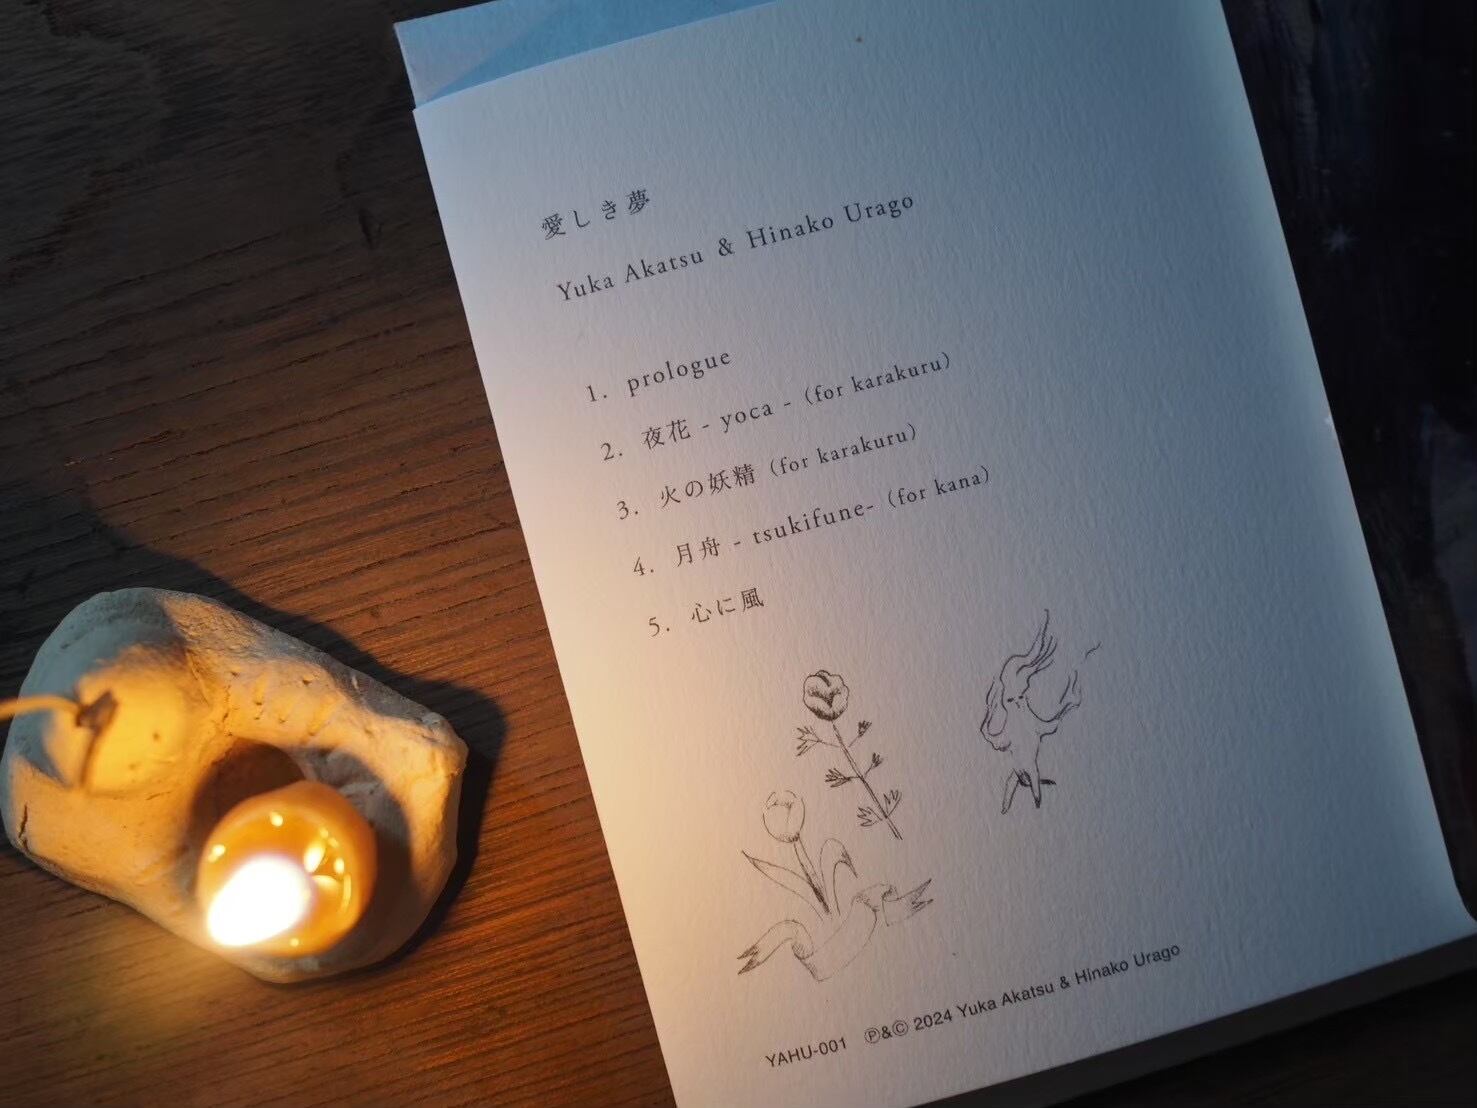 愛しき夢
Yuka Akatsu & Hinako Urago
1. prologue
2. 夜花 - yoca -（for karakuru）
3. 火の妖精（for karakuru）
4. 月舟 - tsukifune-（for kana）
5. 心に風
YAHU-001 ℗&© 2024 Yuka Akatsu & Hinako Urago